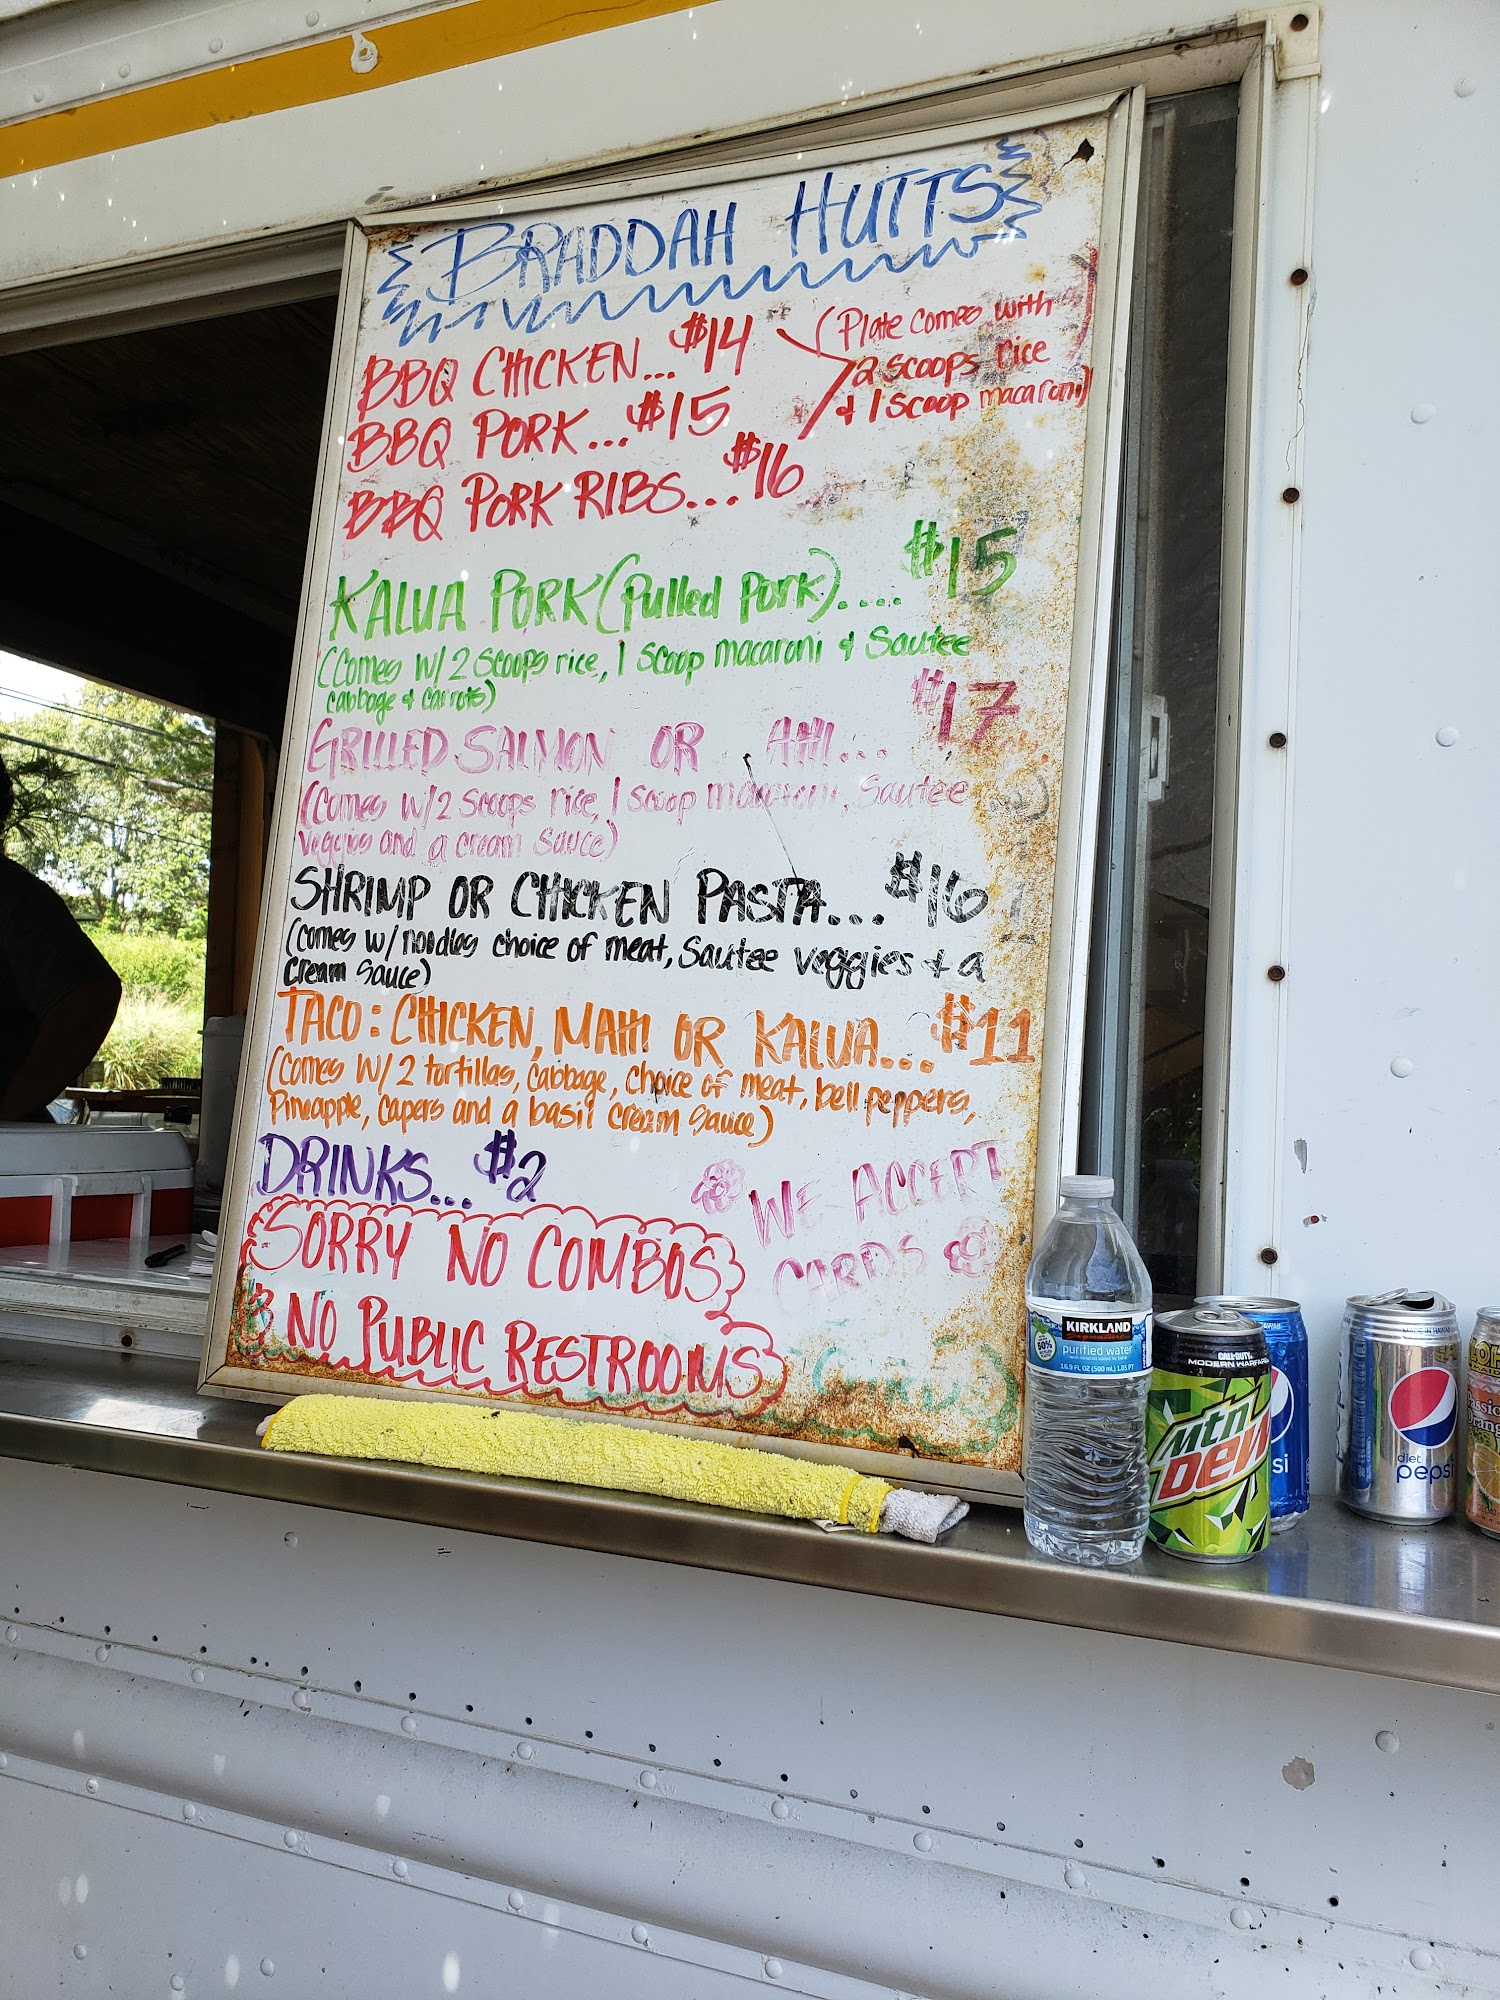 BRADDAH HUTTS
BBQ CHICKEN...$14
(Plate comes with
2 scoops rice
& 1 scoop macaroni)
BBQ PORK...$15
BBQ PORK RIBS...$16
KALUA PORK (Pulled Pork).... $15
(Comes w/ 2 scoops rice, 1 scoop macaroni & Sautee
cabbage & carrots)
GRILLED SALMON OR AHI... $17
(Comes w/ 2 scoops rice, 1 scoop macaroni, Sautee
veggies and a cream sauce)
SHRIMP OR CHICKEN PASTA...$16
(Comes w/ noodles choice of meat, Sautee veggies & a
cream sauce)
TACO: CHICKEN, MAHI OR KALUA...$11
(Comes w/ 2 tortillas, cabbage, choice of meat, bell peppers,
Pineapple, capers and a basil cream sauce)
DRINKS...$2
WE ACCEPT
CARDS
SORRY NO COMBOS
& NO PUBLIC RESTROOMS
KIRKLAND
Signature
purified water
16.9 FL OZ (500 mL) 1.05 PT
CALL OF DUTY
MODERN WARFARE
Mtn
DEW
si
MADE IN HAWAII
diet
pepsi